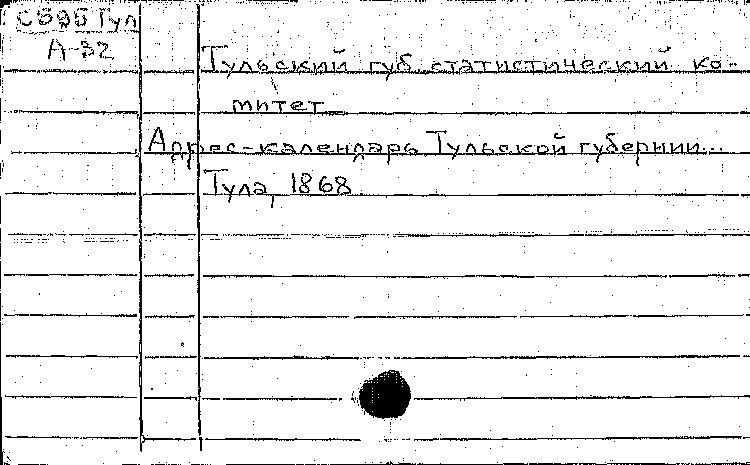 С595 Тул
А-32
Тульский губ. статистический ко-
митет
Адрес-календарь Тульской губернии...
Тула, 1868.